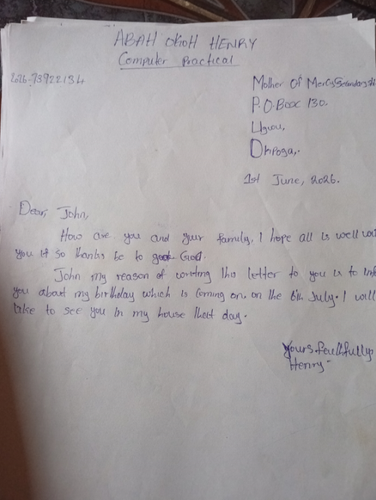 ABAH OKOH HENRY
Computer Practical
2026-93922134
Mother Of Mercy Secondary
P.O.Box 130.
Ugwu,
Okpoga,.
1st June, 2026.
Dear, John,
How are you and your family, I hope all is well
you if so thanks be to God.
John my reason of writing this letter to you is to
you about my birthday which is coming on, on the 6th July. I will
like to see you in my house that day.
Yours faithfully.
Henry-